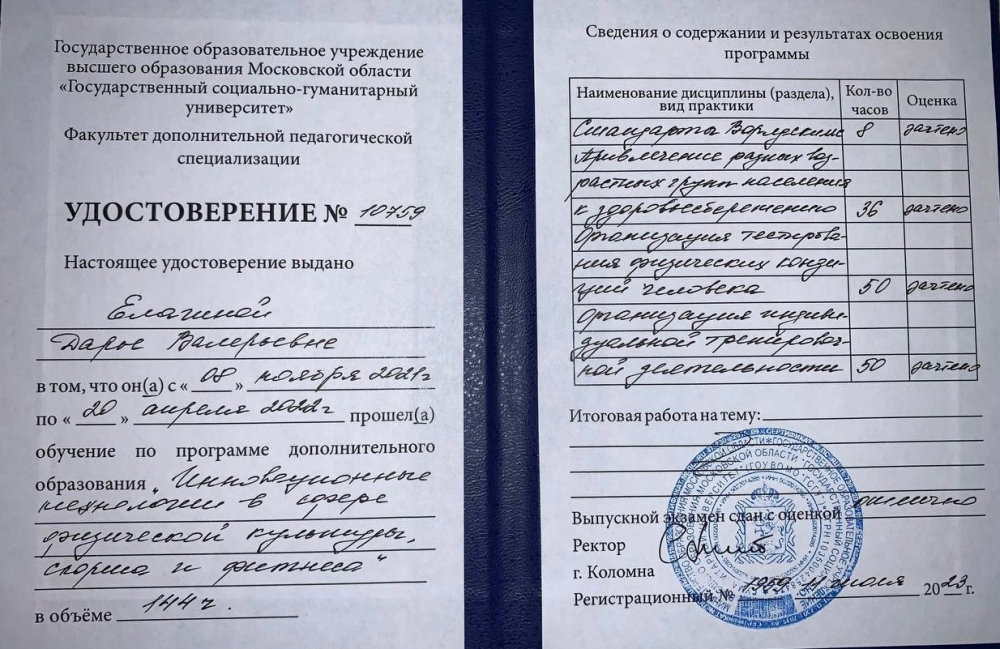 Государственное образовательное учреждение
высшего образования Московской области
«Государственный социально-гуманитарный
университет»
Факультет дополнительной педагогической
специализации
УДОСТОВЕРЕНИЕ № 10759
Настоящее удостоверение выдано
Елагиной
Дарье Валерьевне
в том, что он(а) с « 08 » ноября 2021г
по « 20 » апреля 2022г прошел(а)
обучение по программе дополнительного
образования „Инновационные
технологии в сфере
физической культуры,
спорта и фитнеса“
в объёме 144 ч.
Сведения о содержании и результатах освоения
программы
Наименование дисциплины (раздела), вид практики Кол-во часов Оценка
Стандарты Ворлдскиллс 8 зачтено
Привлечение разных воз-
растных групп населения
к здоровьесбережению 36 зачтено
Организация тестирова-
ния физических конди-
ций человека 50 зачтено
Организация индиви-
дуальной тренировоч-
ной деятельности 50 зачтено
Итоговая работа на тему:
Выпускной экзамен сдан с оценкой отлично
Ректор
г. Коломна
Регистрационный № 1959 11 июля 2023 г.